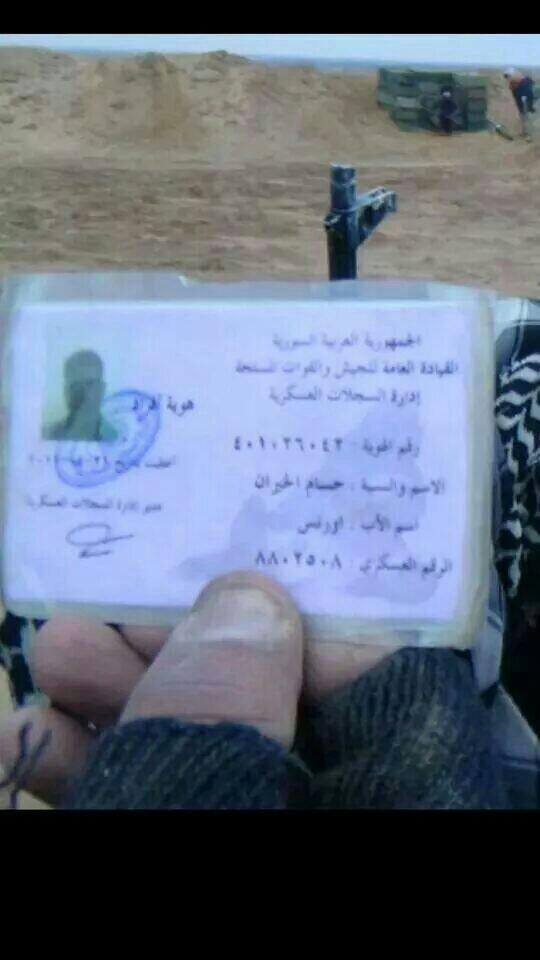 الجمهورية العربية السورية
القيادة العامة للجيش والقوات المسلحة
إدارة السجلات العسكرية
هوية أفراد
رقم الهوية : ٤٠١٠٢٦٠٤٢
الاسم والنسبة : حسام الخيران
اسم الأب : اورنس
الرقم العسكري : ٨٨٠٢٥٠٨
مدير إدارة السجلات العسكرية